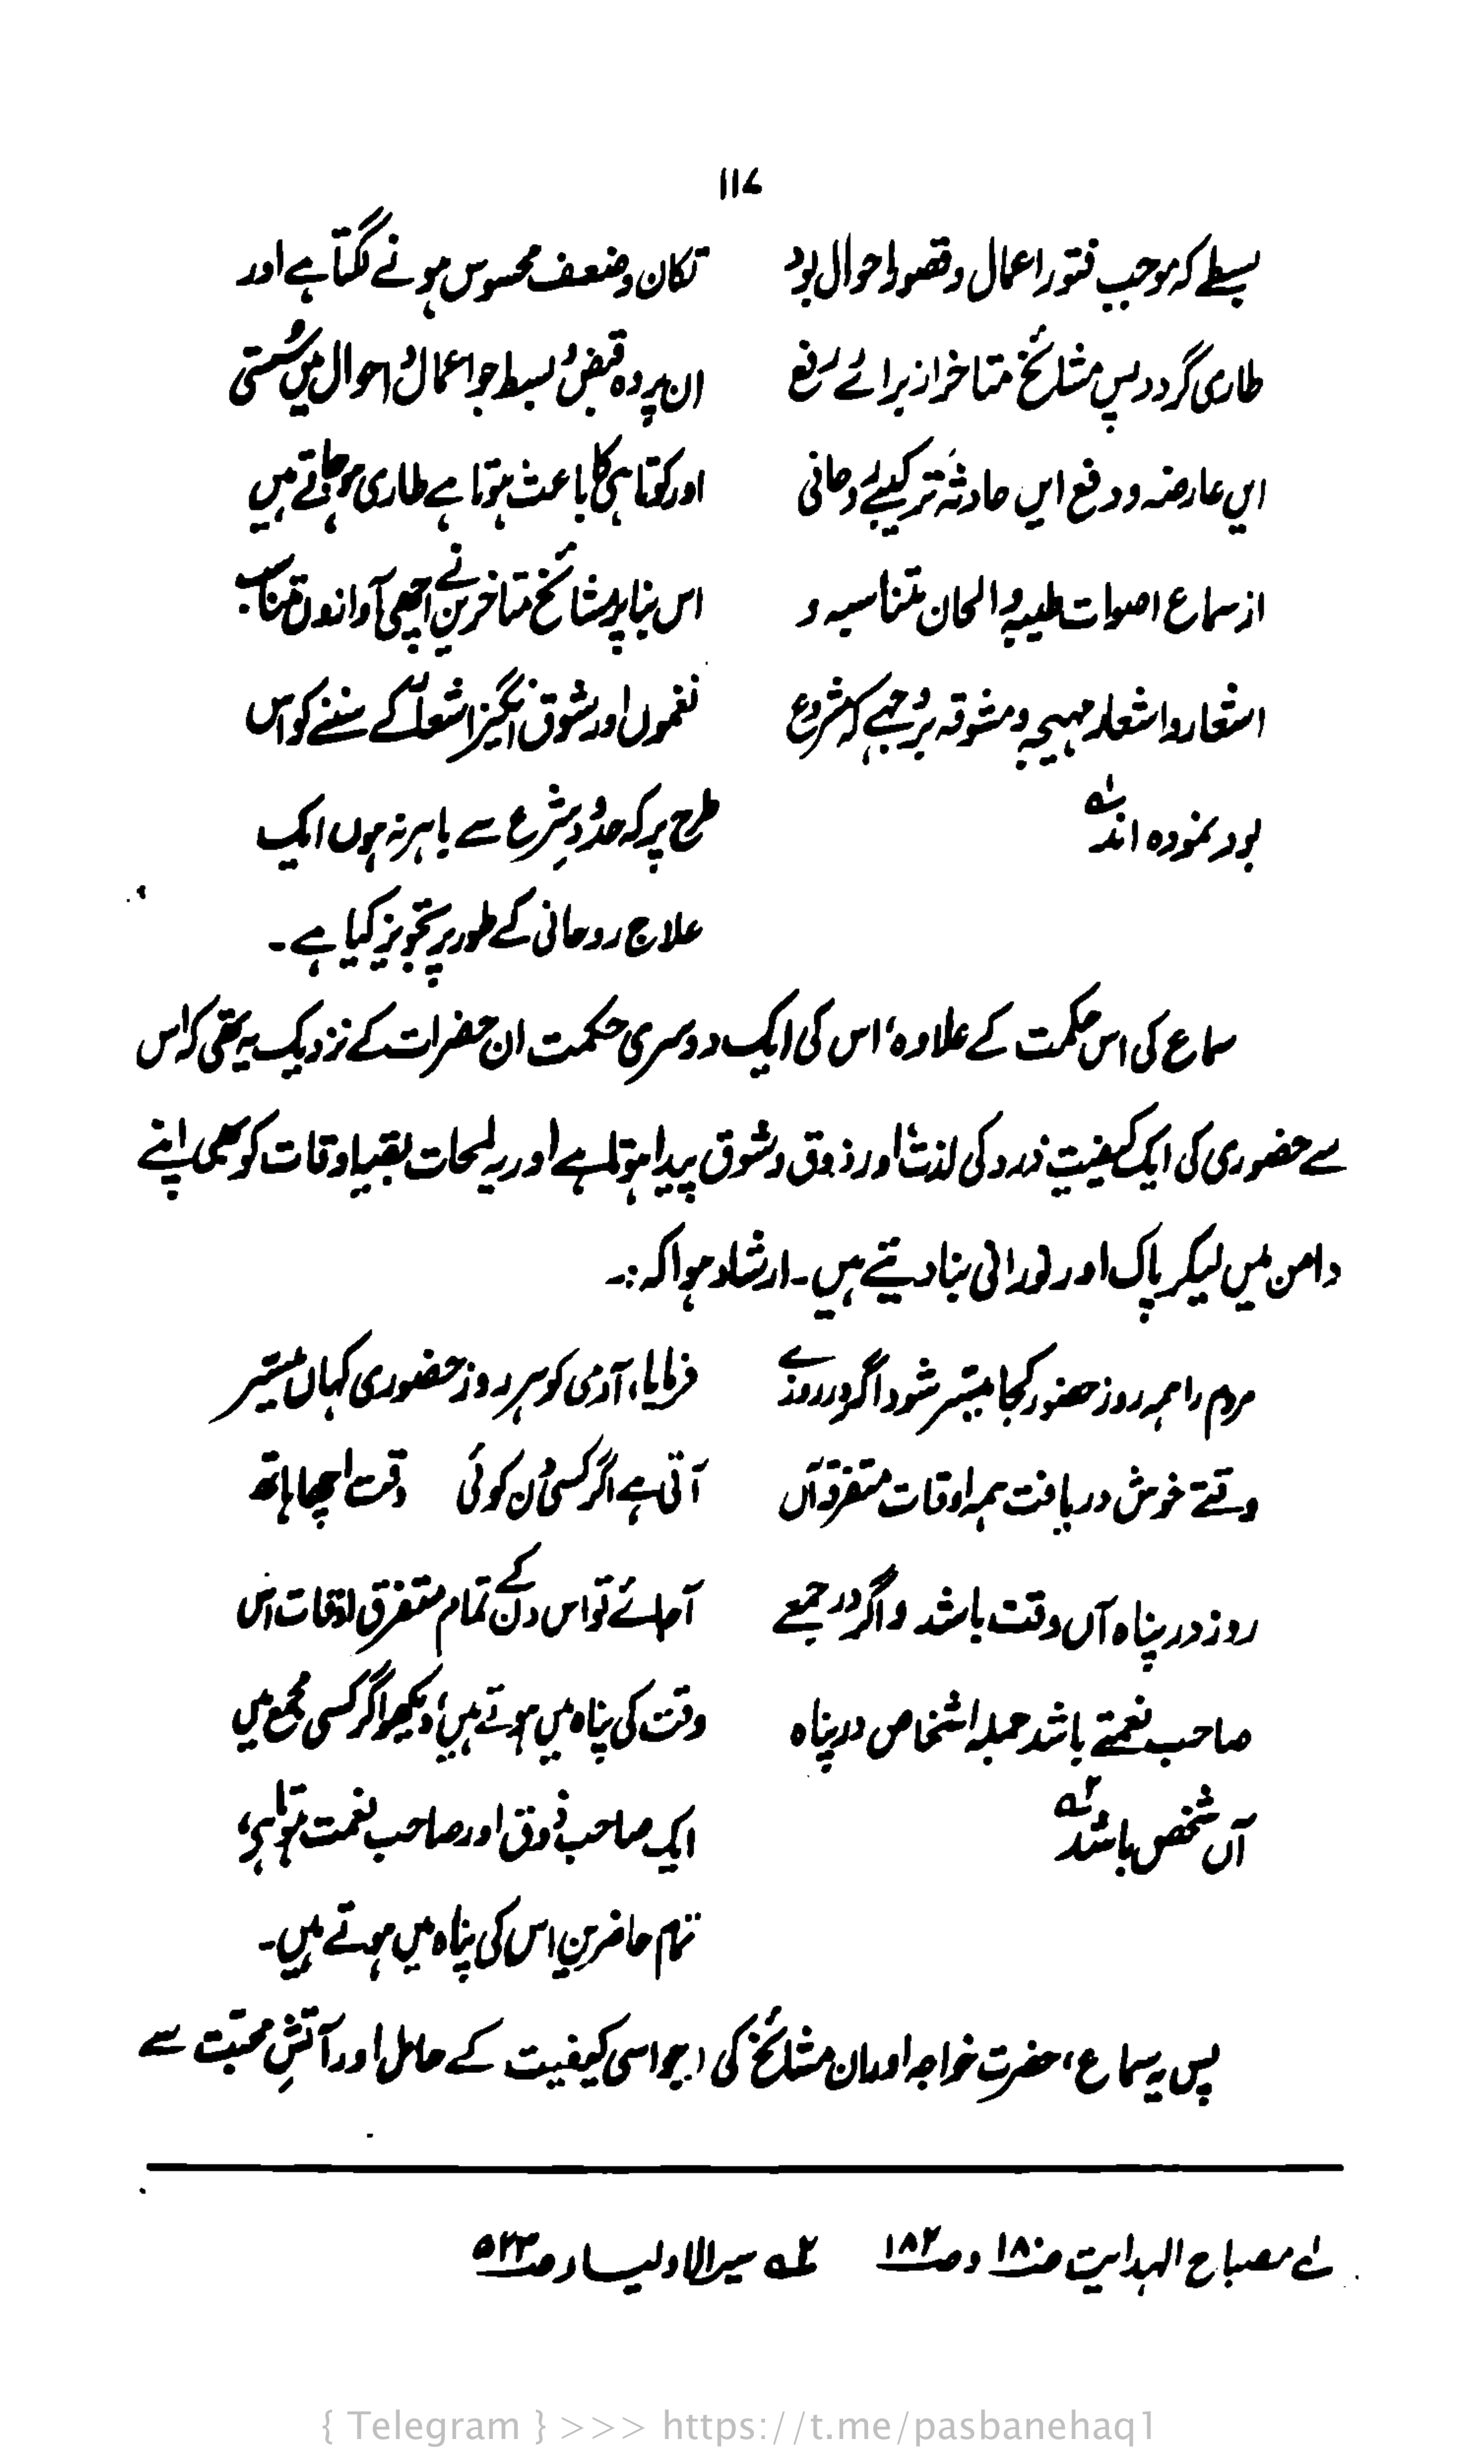 ۱۱۷
بسطے کہ موجب فتور اعمال و قصور احوال بود
طاری گردد پس مشائخ متاخر از برائے رفع
ایں عارضہ و دفع ایں حادثہ ترکیبے روحانی
از سماع اصوات طیبہ و الحان متناسبہ و
اشعار و اشعار مہیجہ و مشوقہ بر وجہے کہ مشروع
بود نمودہ اند لہ
تکان و ضعف محسوس ہونے لگتا ہے اور
ان پر وہ قبض و بسط جو اعمال و احوال میں سُستی
اور کوتاہی کا باعث ہوتا ہے طاری ہوجاتے ہیں
اس بنا پر مشائخ متاخرین نے اچھی آوازوں متناسب
نغموں اور شوق انگیز اشعار کے سننے کو اس
طرح پر کہ حدودِ شرع سے باہر نہ ہوں ایک
علاج روحانی کے طور پر تجویز کیا ہے۔
سماع کی اس حکمت کے علاوہ، اس کی ایک دوسری حکمت ان حضرات کے نزدیک یہ تھی کہ اس
سے حضوری کی ایک کیفیت درد کی لذت اور ذوق و شوق پیدا ہوتا ہے اور یہ لمحات بقیہ اوقات کو بھی اپنے
دامن میں لیکر پاک اور نورانی بنا دیتے ہیں۔ ارشاد ہوا کہ :۔
مردم را ہمہ روز حضور کجا میسّر شود اگر در روزے
وقتے خوش دریافت ہمہ اوقات متفرقہ آں
روز در پناہ آں وقت باشد و اگر در جمعے
صاحب نعمتے باشد جملہ اشخاص در پناہ
آں شخص باشد ۲ہ
فرمایا، آدمی کو ہر روز حضوری کہاں میّسر
آتی ہے اگر کسی دن کوئی وقت اچھا ہاتھ
آجائے تو اس دن کے تمام متفرق اوقات اس
وقت کی پناہ میں ہوتے ہیں؛ دیکھو اگر کسی مجمع میں
ایک صاحب ذوق اور صاحب نعمت ہوتا ہے،
تمام حاضرین اس کی پناہ میں ہوتے ہیں۔
پس یہ سماع، حضرت خواجہ اور ان مشائخ کی (جو اسی کیفیت کے حامل اور آتشِ محبّت سے
لہ مصباح الہدایت ص۱۸۰ و ص۱۸۲ ۲ہ سیر الاولیاء ص۵۲۳
{ Telegram } >>> https://t.me/pasbanehaq1